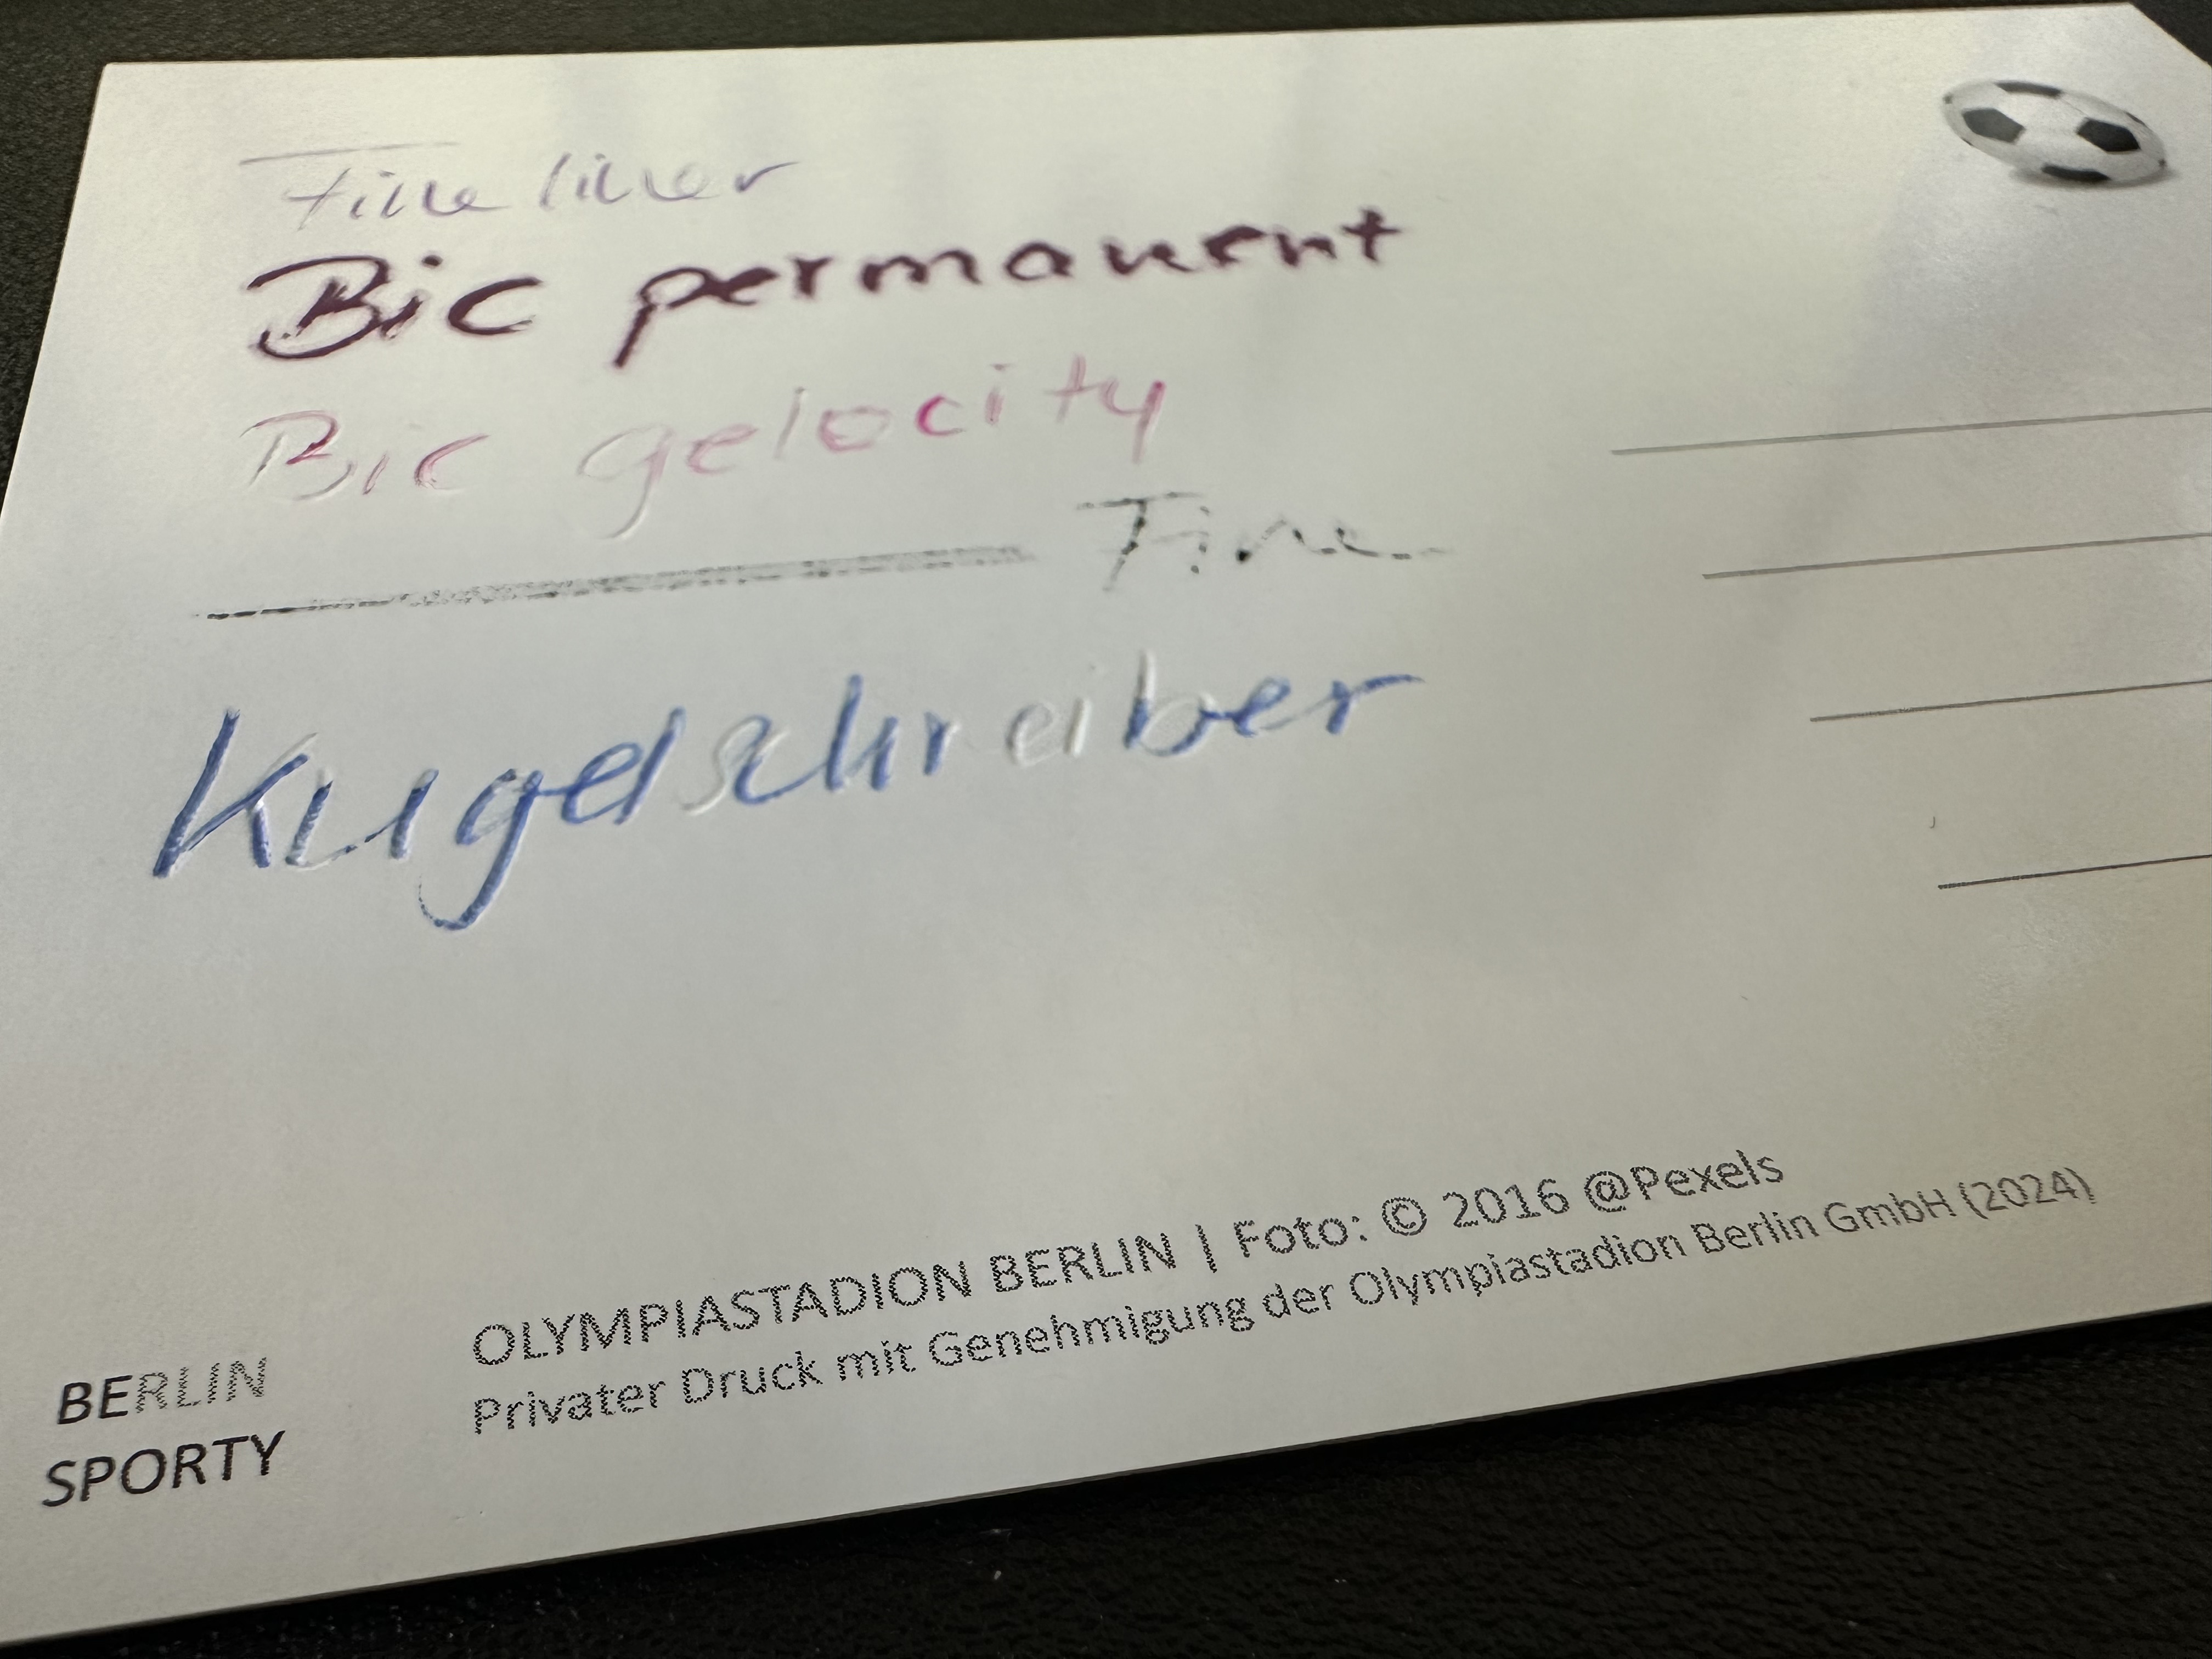 Fineliner
Bic permanent
Bic gelocity
Fine
Kugelschreiber
OLYMPIASTADION BERLIN | Foto: © 2016 @Pexels
Privater Druck mit Genehmigung der Olympiastadion Berlin GmbH (2024)
BERLIN
SPORTY